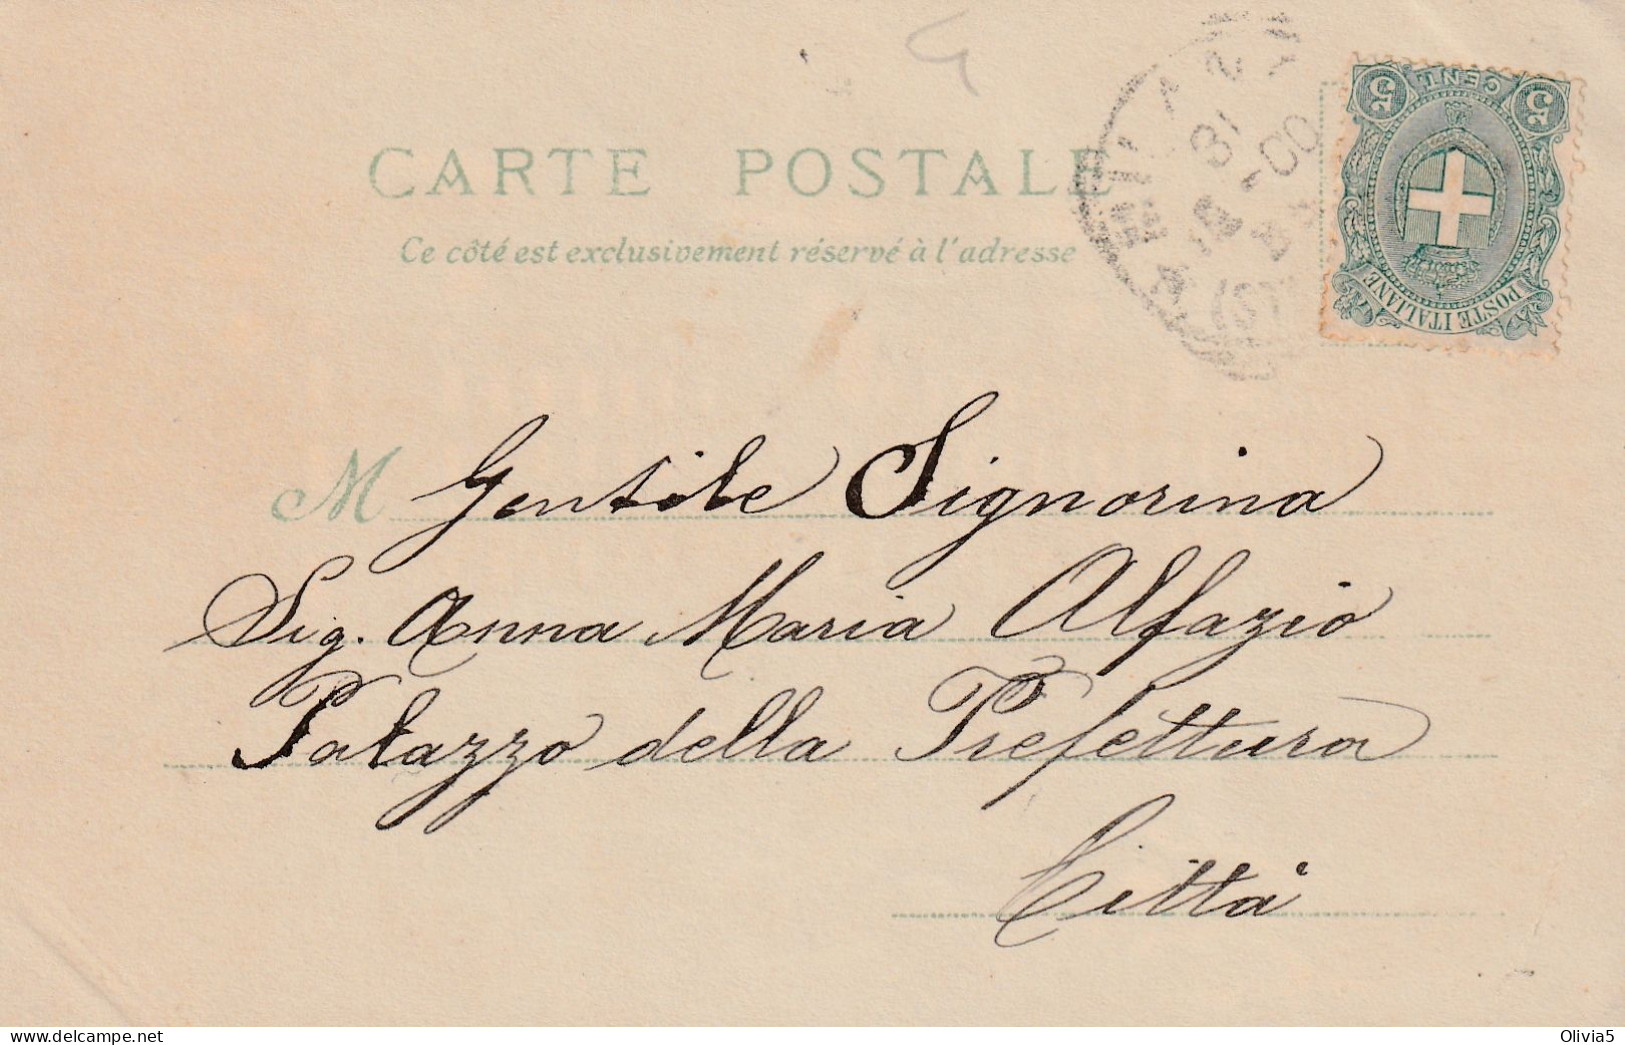 CARTE POSTALE
Ce côté est exclusivement réservé à l'adresse
5 CENT 5
POSTE ITALIANE
M Gentile Signorina
Sig. Anna Maria Alfazio
Palazzo della Prefettura
Città
Olivia5